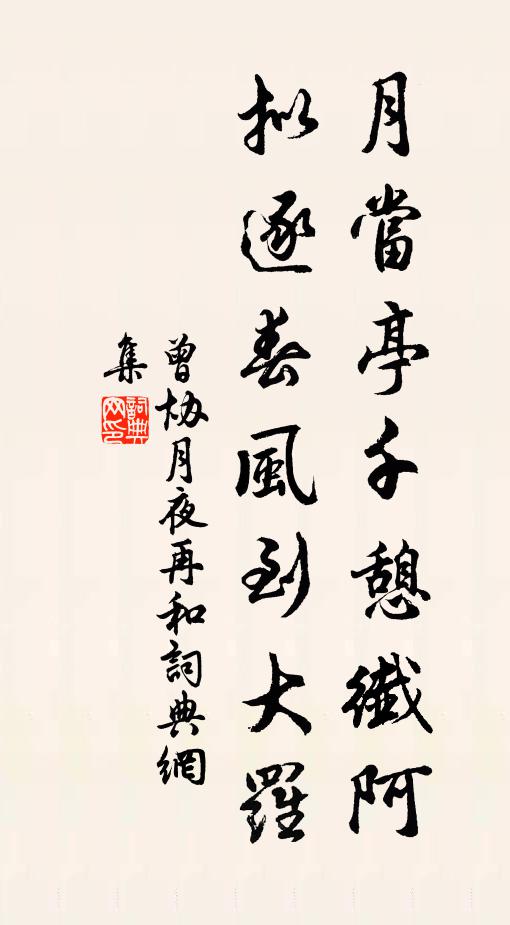 月當亭千憩纖阿
拟逐春風到大羅
曾協月夜再和詞典網
集
詞典
网印